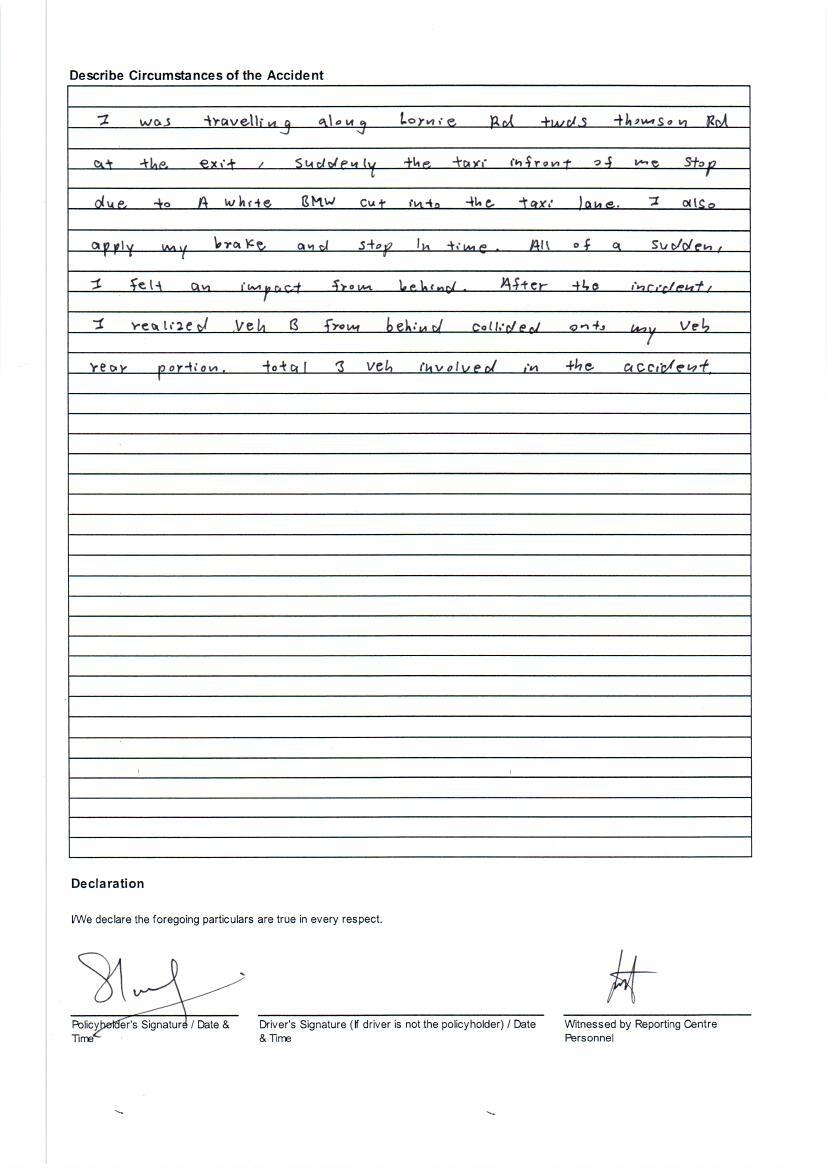 Describe Circumstances of the Accident
I was travelling along Lornie Rd twds thomson Rd
at the exit, suddenly the taxi infront of me stop
due to A white BMW cut into the taxi lane. I also
apply my brake and stop In time. All of a sudden,
I felt an impact from behind. After the incident,
I realized veh B from behind collided onto my veh
rear portion. total 3 veh involved in the accident.
Declaration
I/We declare the foregoing particulars are true in every respect.
Policyholder's Signature / Date &
Time
Driver's Signature (If driver is not the policyholder) / Date
& Time
Witnessed by Reporting Centre
Personnel